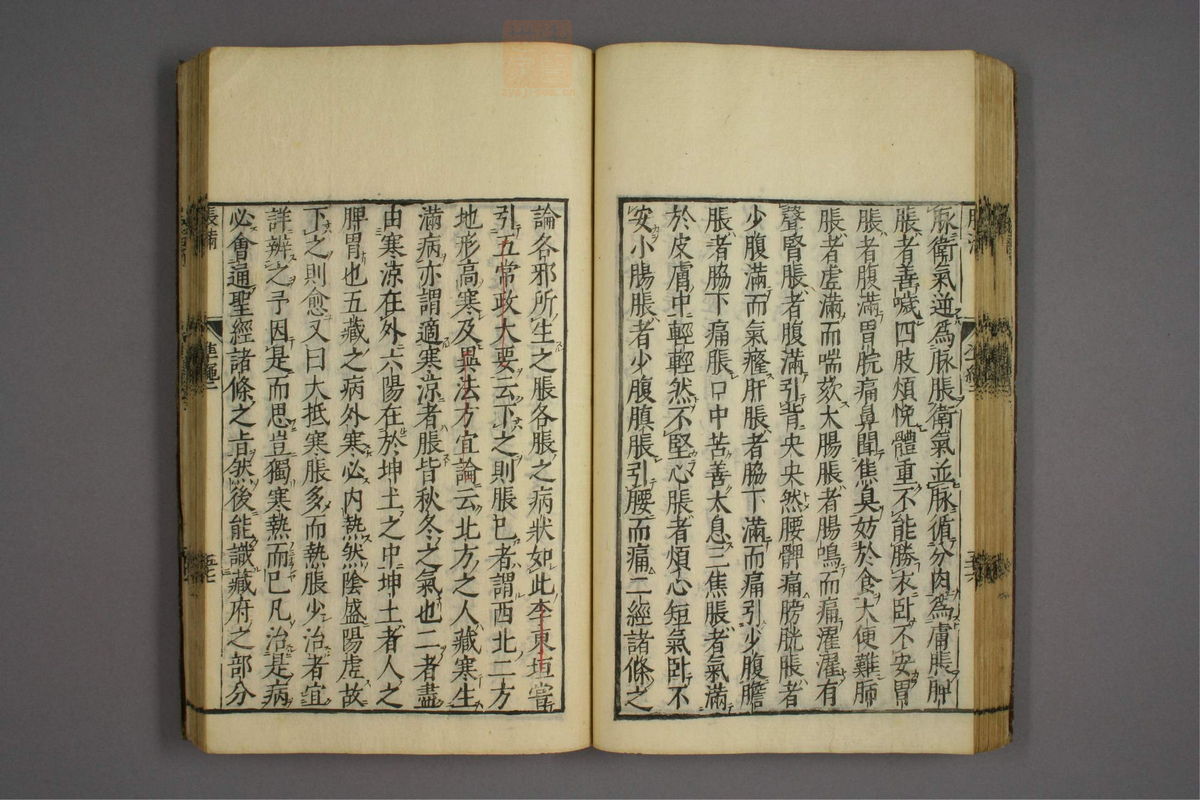 脉衛氣逆爲脉脹衛氣並脉循分内爲膚脹脾
脹者善噦四肢煩悗體重不能勝衣臥不安胃
脹者腹滿胃脘痛鼻聞焦臭妨於食大便難肺
脹者虚滿而喘欬大腸脹者腸鳴而痛濯濯有
聲腎脹者腹滿引背央央然腰髀痛膀胱脹者
少腹滿而氣癃肝脹者脇下滿而痛引少腹膽
脹者脇下痛脹口中苦善太息三焦脹者氣滿
於皮膚中輕輕然不堅心脹者煩心短氣臥不
安小腸脹者少腹䐜脹引腰而痛二經諸條之
論各邪所生之脹各脹之病狀如此李東垣嘗
引五常政大要云下之則脹已者謂西北二方
地形高寒及異法方宜論云北方之人藏寒生
滿病亦謂適寒涼者脹皆秋冬之氣也二者盡
由寒涼在外六陽在於坤土之中坤土者人之
脾胃也五藏之病外寒必内熱然陰盛陽虚故
下之則愈又曰大抵寒脹多而熱脹少治者宜
詳辨之予因是而思豈獨寒熱而已凡治是病
必會通聖經諸條之旨然後能識藏府之部分
脹滿